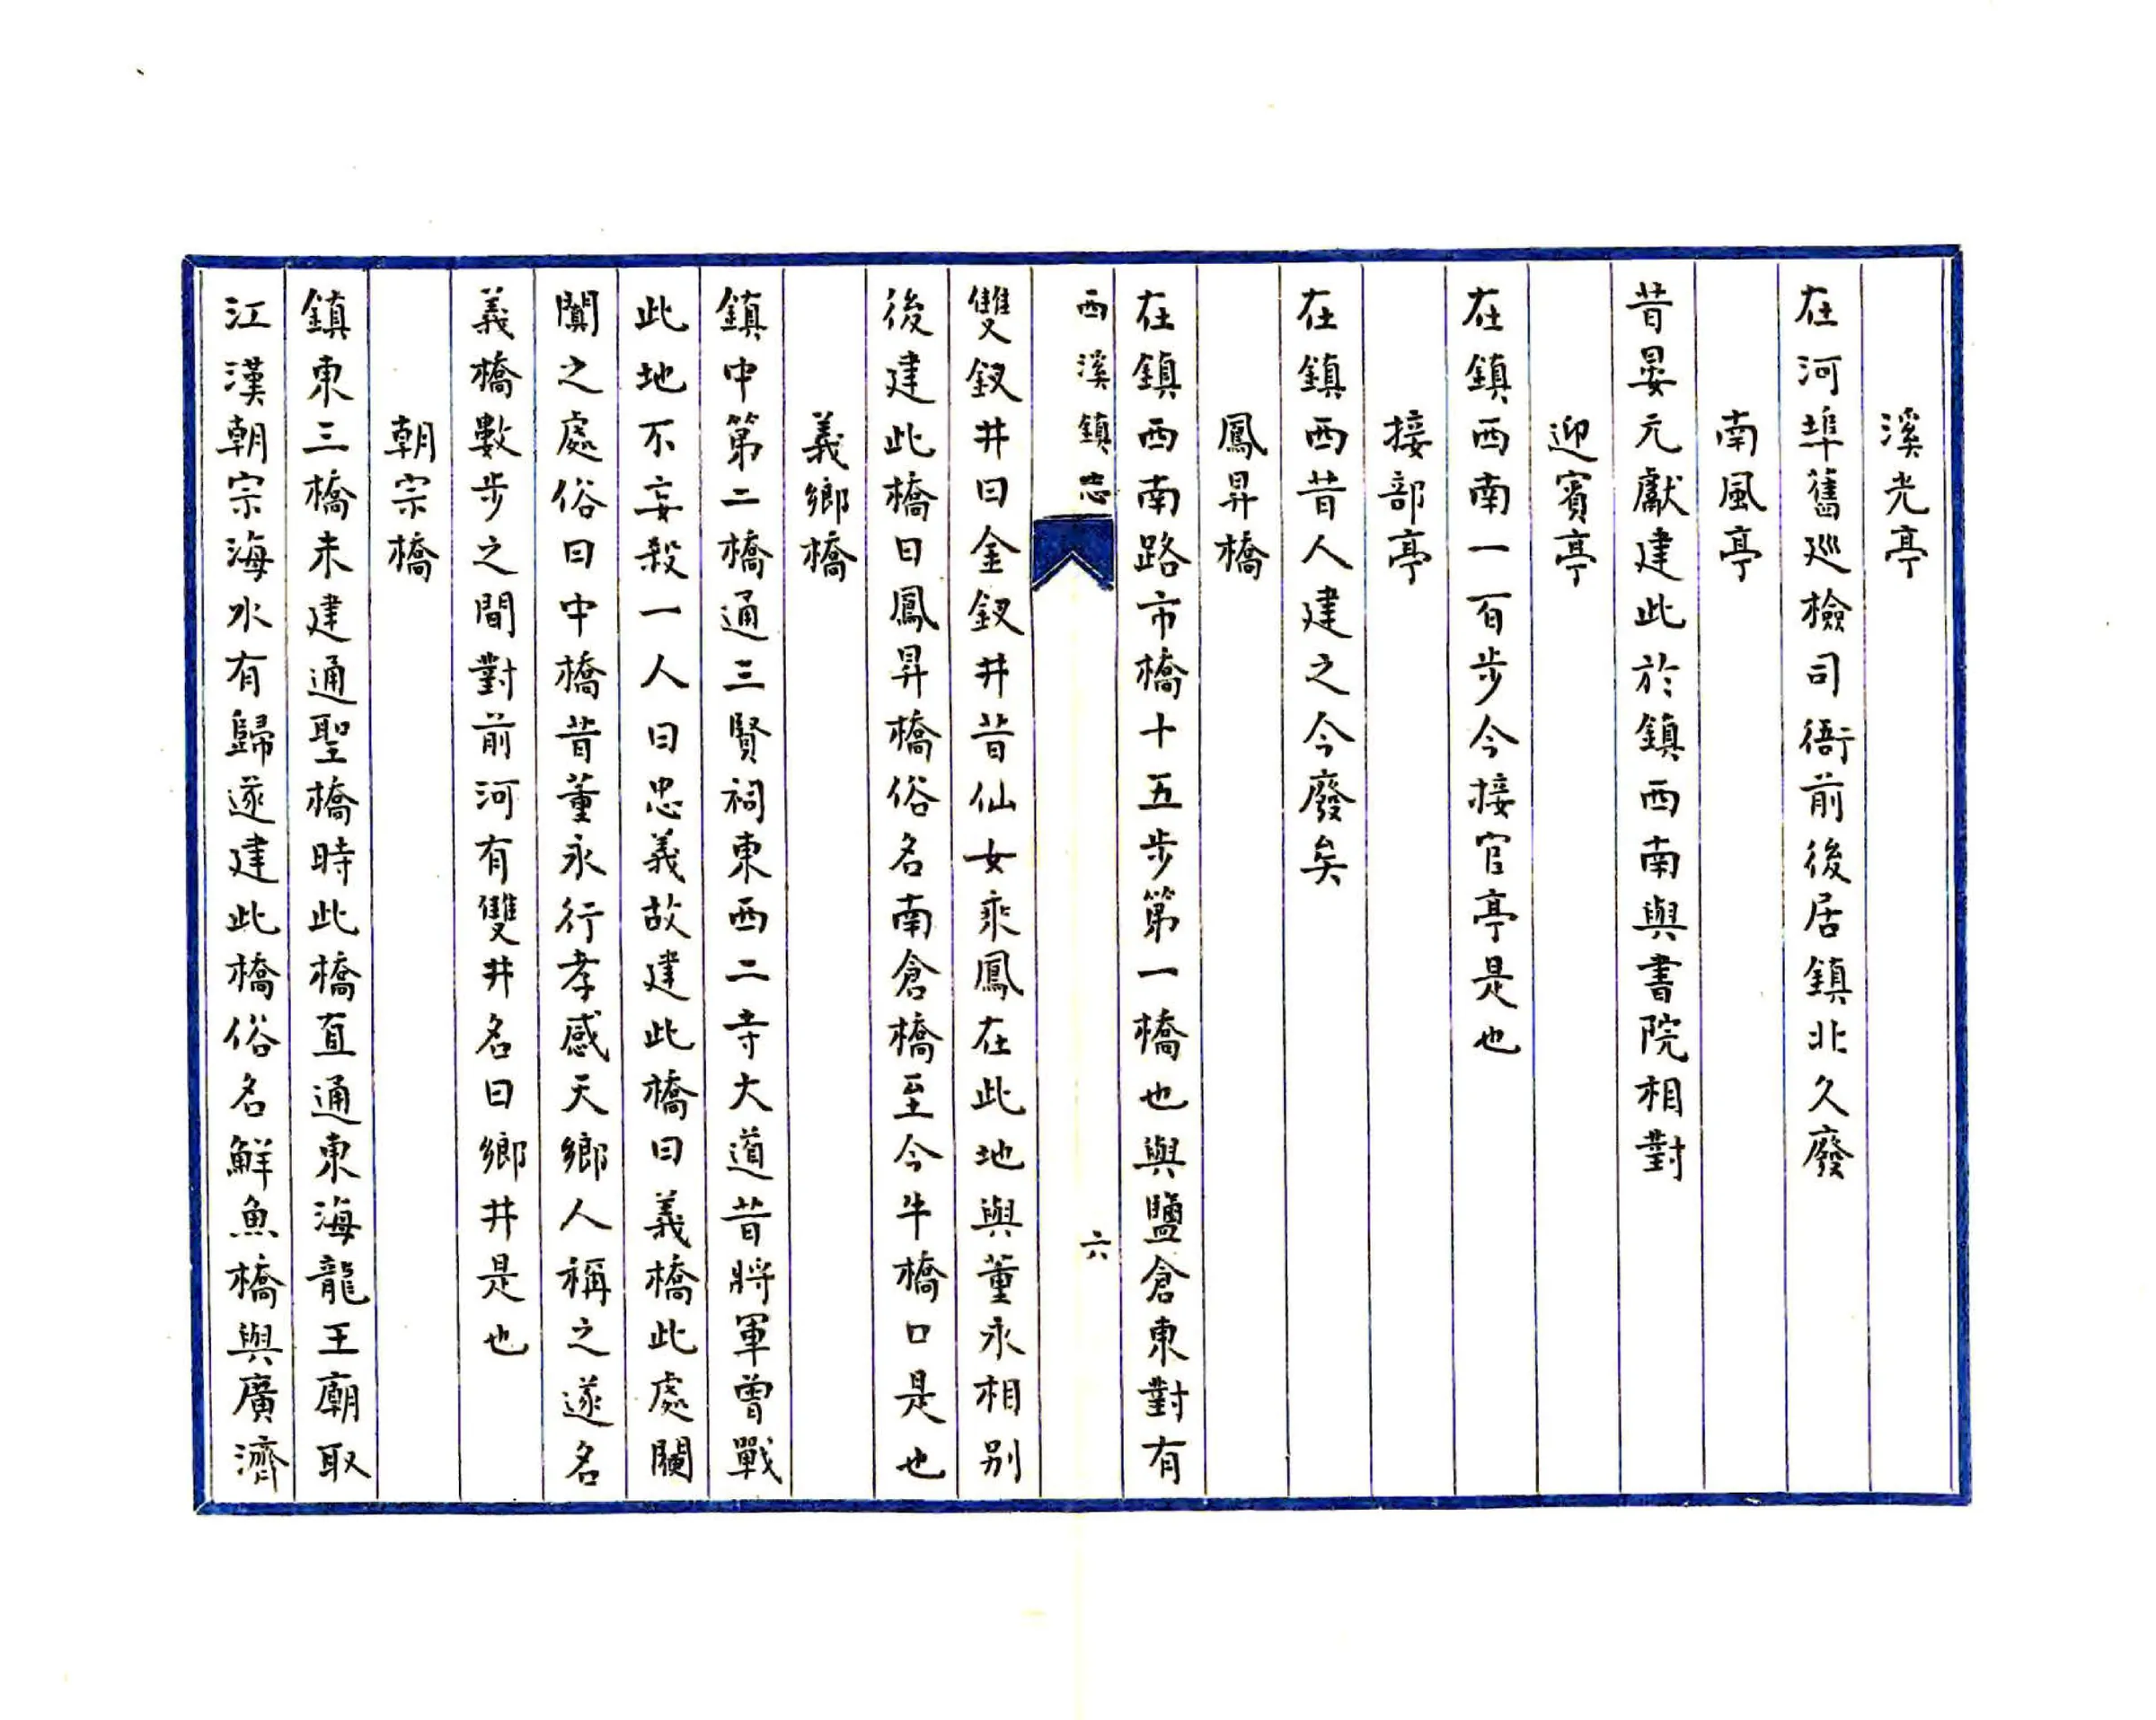 溪光亭
在河埠舊巡檢司衙前後居鎮北久廢
南風亭
昔晏元獻建此於鎮西南與書院相對
迎賓亭
在鎮西南一百步今接官亭是也
接部亭
在鎮西昔人建之今廢矣
鳳昇橋
在鎮西南路市橋十五步第一橋也與鹽倉東對有
西溪鎮志 六
雙釵井曰金釵井昔仙女乘鳳在此地與董永相别
後建此橋曰鳳昇橋俗名南倉橋至今牛橋口是也
義鄉橋
鎮中第二橋通三賢祠東西二寺大道昔將軍曾戰
此地不妄殺一人曰忠義故建此橋曰義橋此處闤
闠之處俗曰中橋昔董永行孝感天鄉人稱之遂名
義橋數步之間對前河有雙井名曰鄉井是也
朝宗橋
鎮東三橋未建通聖橋時此橋直通東海龍王廟取
江漢朝宗海水有歸遂建此橋俗名鮮魚橋與廣濟